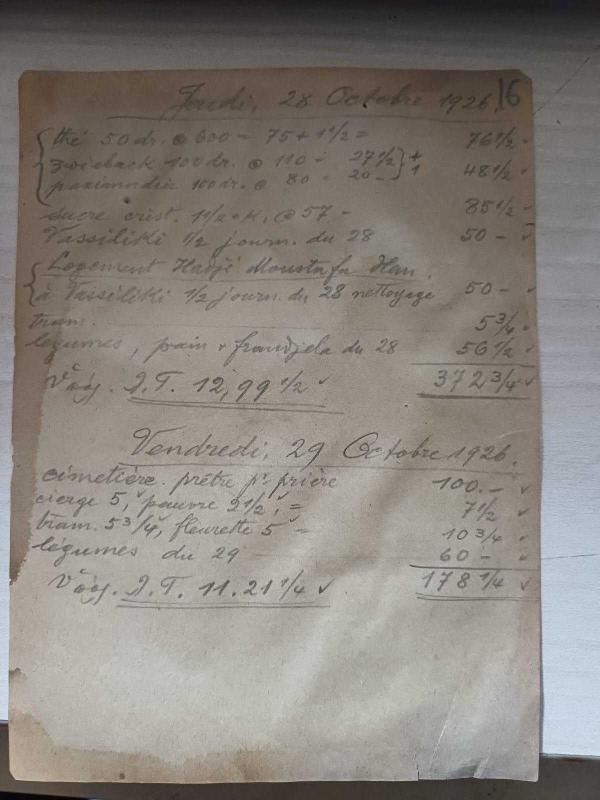 Jeudi, 28 Octobre 1926. 16
thé 50 dr. @ 600 = 75 + 1 1/2 = 76 1/2
zwieback 100 dr. @ 110 = 27 1/2 } + 48 1/2
paximadia 100 dr. @ 80 = 20 - } 1
sucre crist. 1 1/2 ok. @ 57 - 85 1/2
Vassiliki 1/2 journ. du 28 50 -
Logement Hadji Moustafa Han.
à Vassiliki 1/2 journ. du 28 nettoyage 50 -
tram. 5 3/4
légumes, pain + frandjela du 28 56 1/2
12,99 1/2 372 3/4
Vendredi, 29 Octobre 1926.
cimetière. prêtre pr prière 100. -
cierge 5, pauvre 2 1/2, = 7 1/2
tram. 5 3/4, fleurette 5 = 10 3/4
légumes du 29 60 -
11.21 1/4 178 1/4